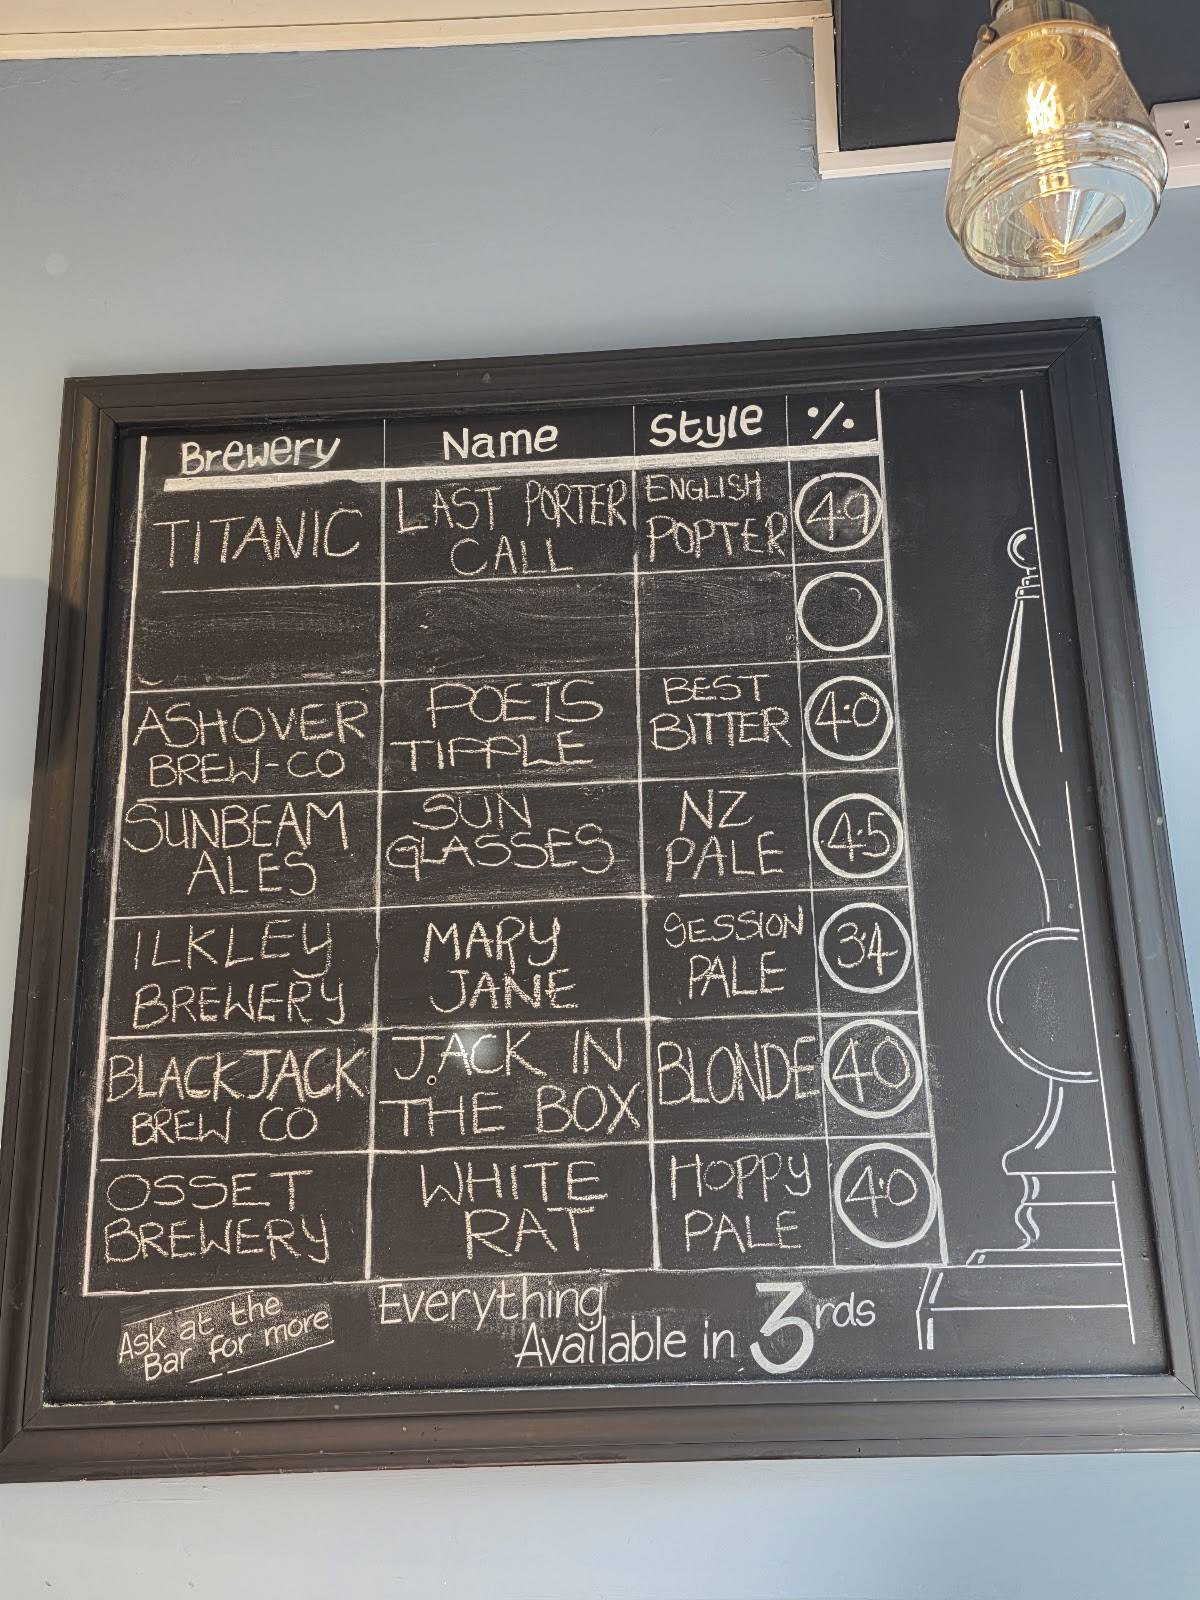 Brewery Name Style %
TITANIC LAST PORTER CALL ENGLISH POPTER 4.9
ASHOVER BREW-CO POETS TIPPLE BEST BITTER 4.0
SUNBEAM ALES SUN GLASSES NZ PALE 4.5
ILKLEY BREWERY MARY JANE SESSION PALE 3.4
BLACKJACK BREW CO JACK IN THE BOX BLONDE 4.0
OSSET BREWERY WHITE RAT HOPPY PALE 4.0
Ask at the
Bar for more
Everything
Available in 3rds